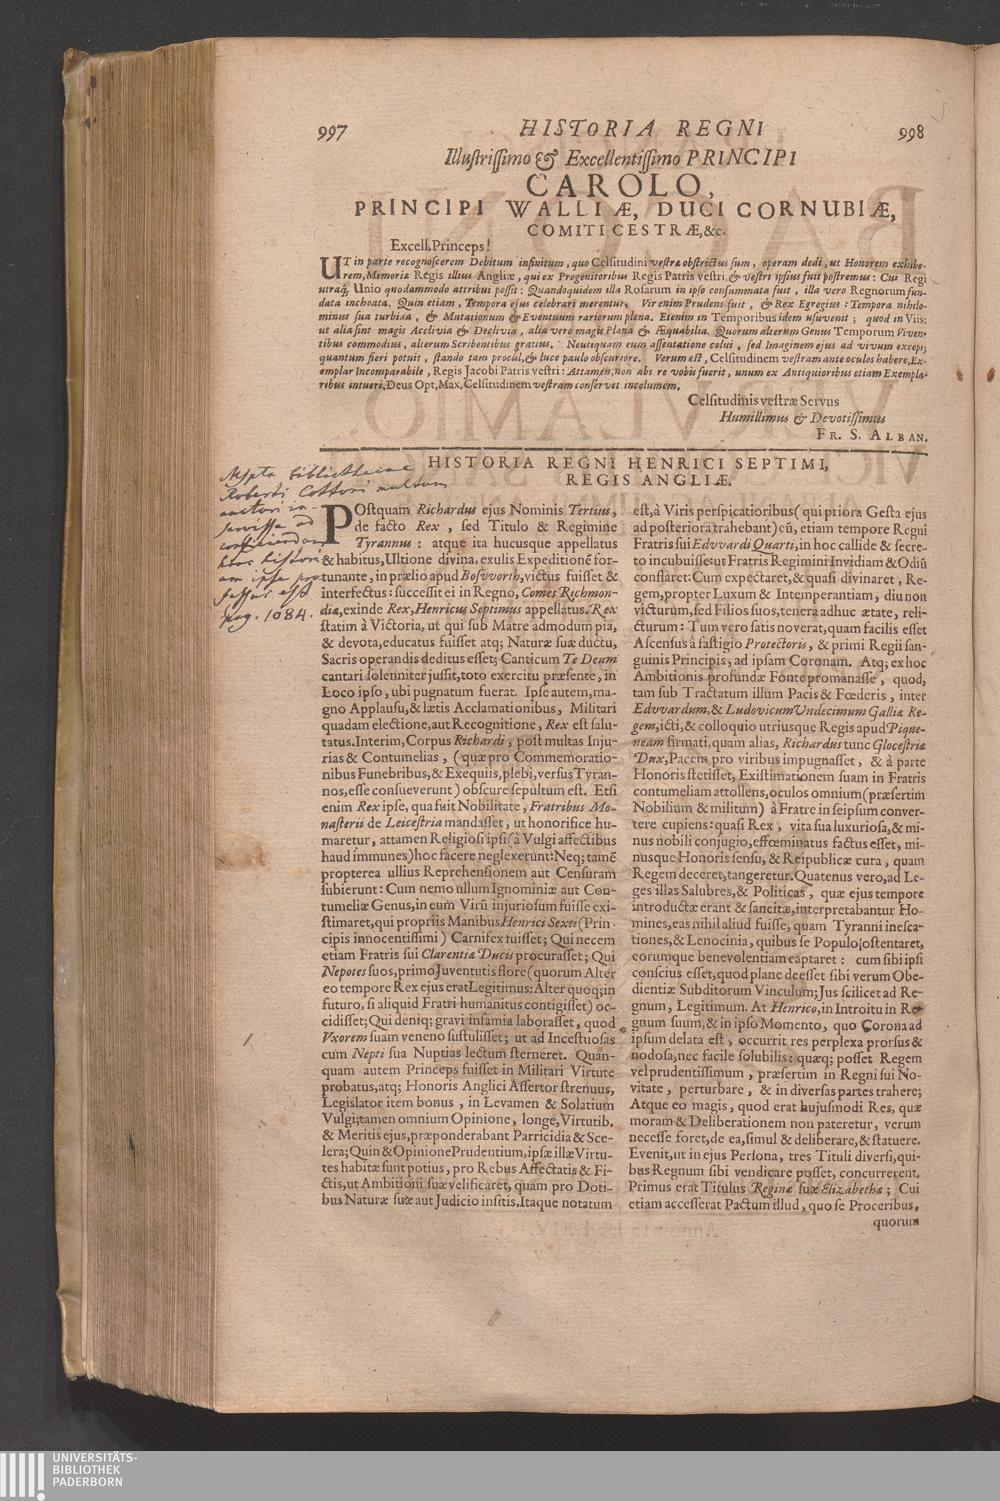 997 HISTORIA REGNI 998
Illustrissimo & Excellentissimo PRINCIPI
CAROLO,
PRINCIPI WALLIÆ, DUCI CORNUBIÆ,
COMITI CESTRÆ, &c.
Excell. Princeps!
UT in parte recognoscerem Debitum infinitum, quo Celsitudini vestræ obstrictus sum, operam dedi, ut Honorem exhibe-
rem, Memoriæ Regis illius Angliæ, qui ex Progenitoribus Regis Patris vestri & vestri ipsius fuit postremus: Cui Regi
utraq; Unio quodammodo attribui possit: Quandoquidem illa Rosarum in ipso consummata fuit, illa vero Regnorum fun-
data inchoata. Quin etiam, Tempora ejus celebrari merentur. Vir enim Prudens fuit, & Rex Egregius: Tempora nihilo-
minus sua turbida, & Mutationum & Eventuum rariorum plena. Etenim in Temporibus idem usuvenit; quod in Viis:
ut alia sint magis Acclivia & Declivia, alia vero magis Plana & Æquabilia. Quorum alterum Genus Temporum Viven-
tibus commodius, alterum Scribentibus gratius. Neutiquam eum assentatione colui, sed Imaginem ejus ad vivum excepi;
quantum fieri potuit, stando tam procul, & luce paulo obscuriore. Verum est, Celsitudinem vestram ante oculos habere, Ex-
emplar Incomparabile, Regis Jacobi Patris vestri: Attamen, non abs re vobis fuerit, unum ex Antiquioribus etiam Exempla-
ribus intueri. Deus Opt. Max. Celsitudinem vestram conservet incolumem.
Celsitudinis vestræ Servus
Humillimus & Devotissimus
FR. S. ALBAN.
HISTORIA REGNI HENRICI SEPTIMI,
REGIS ANGLIÆ.
Mspta bibliothecae
Roberti Cottoni multum
auctori in-
servisse ad
conficiendam
hanc histori
am ipse pro-
fessus est
pag. 1084.
POstquam Richardus ejus Nominis Tertius,
de facto Rex, sed Titulo & Regimine
Tyrannus: atque ita hucusque appellatus
& habitus, Ultione divina, exulis Expeditionē for-
tunante, in prælio apud Bosvvorth, victus fuisset &
interfectus: successit ei in Regno, Comes Richmon-
diæ, exinde Rex, Henricus Septimus appellatus. Rex
statim à Victoria, ut qui sub Matre admodum pia,
& devota, educatus fuisset atq; Naturæ suæ ductu,
Sacris operandis deditus esset; Canticum Te Deum
cantari solenniter jussit, toto exercitu præsente, in
Loco ipso, ubi pugnatum fuerat. Ipse autem, ma-
gno Applausu, & lætis Acclamationibus, Militari
quadam electione, aut Recognitione, Rex est salu-
tatus. Interim, Corpus Richardi, post multas Inju-
rias & Contumelias, (quæ pro Commemoratio-
nibus Funebribus, & Exequiis, plebi, versus Tyran-
nos, esse consueverunt) obscure sepultum est. Etsi
enim Rex ipse, qua fuit Nobilitate, Fratribus Mo-
nasterii de Leicestria mandasset, ut honorifice hu-
maretur, attamen Religiosi ipsi (à Vulgi affectibus
haud immunes) hoc facere neglexerunt: Neq; tamē
propterea ullius Reprehensionem aut Censuram
subierunt: Cum nemo ullum Ignominiæ aut Con-
tumeliæ Genus, in eum Virū injuriosum fuisse exi-
stimaret, qui propriis Manibus Henrici Sexti (Prin-
cipis innocentissimi) Carnifex fuisset; Qui necem
etiam Fratris sui Clarentiæ Ducis procurasset; Qui
Nepotes suos, primo Juventutis flore (quorum Alter
eo tempore Rex ejus erat Legitimus: Alter quoq; in
futuro, si aliquid Fratri humanitus contigisset) oc-
cidisset; Qui deniq; gravi infamia laborasset, quod
Vxorem suam veneno sustulisset; ut ad Incestuosas
cum Nepti sua Nuptias lectum sterneret. Quan-
quam autem Princeps fuisset in Militari Virtute
probatus, atq; Honoris Anglici Assertor strenuus,
Legislator item bonus, in Levamen & Solatium
Vulgi; tamen omnium Opinione, longe, Virtutib.
& Meritis ejus, præponderabant Parricidia & Sce-
lera; Quin & Opinione Prudentium, ipsæ illæ Virtu-
tes habitæ sunt potius, pro Rebus Affectatis & Fi-
ctis, ut Ambitioni suæ velificaret, quam pro Doti-
bus Naturæ suæ aut Judicio insitis. Itaque notatum
est, à Viris perspicatioribus (qui priora Gesta ejus
ad posteriora trahebant) cū, etiam tempore Regni
Fratris sui Edvvardi Quarti, in hoc callide & secre-
to incubuisse: ut Fratris Regimini Invidiam & Odiū
conflaret: Cum expectaret, & quasi divinaret, Re-
gem, propter Luxum & Intemperantiam, diu non
victurum, sed Filios suos, tenera adhuc ætate, reli-
cturum: Tum vero satis noverat, quam facilis esset
Ascensus à fastigio Protectoris, & primi Regii san-
guinis Principis, ad ipsam Coronam. Atq; ex hoc
Ambitionis profundæ Fonte promanasse, quod,
tam sub Tractatum illum Pacis & Fœderis, inter
Edvvardum, & Ludovicum Undecimum Galliæ Re-
gem, icti, & colloquio utriusque Regis apud Pique-
neam firmati, quam alias, Richardus tunc Glocestriæ
Dux, Pacem pro viribus impugnasset, & à parte
Honoris stetisset, Existimationem suam in Fratris
contumeliam attollens, oculos omnium (præsertim
Nobilium & militum) à Fratre in seipsum conver-
tere cupiens: quasi Rex, vita sua luxuriosa, & mi-
nus nobili conjugio, effœminatus factus esset, mi-
nusque Honoris sensu, & Reipublicæ cura, quam
Regem deceret, tangeretur. Quatenus vero, ad Le-
ges illas Salubres, & Politicas, quæ ejus tempore
introductæ erant & sancitæ, interpretabantur Ho-
mines, eas nihil aliud fuisse, quam Tyranni inesca-
tiones, & Lenocinia, quibus se Populo ostentaret,
eorumque benevolentiam captaret: cum sibi ipsi
conscius esset, quod plane deesset sibi verum Obe-
dientiæ Subditorum Vinculum; Jus scilicet ad Re-
gnum, Legitimum. At Henrico, in Introitu in Re-
gnum suum, & in ipso Momento, quo Corona ad
ipsum delata est, occurrit res perplexa prorsus &
nodosa, nec facile solubilis: quæq; posset Regem
vel prudentissimum, præsertim in Regni sui No-
vitate, perturbare, & in diversas partes trahere;
Atque eo magis, quod erat hujusmodi Res, quæ
moram & Deliberationem non pateretur, verum
necesse foret, de ea, simul & deliberare, & statuere.
Evenit, ut in ejus Persona, tres Tituli diversi, qui-
bus Regnum sibi vendicare posset, concurrerent.
Primus erat Titulus Reginæ suæ Elizabethæ; Cui
etiam accesserat Pactum illud, quo se Proceribus,
quorum
UNIVERSITÄTS-
BIBLIOTHEK
PADERBORN